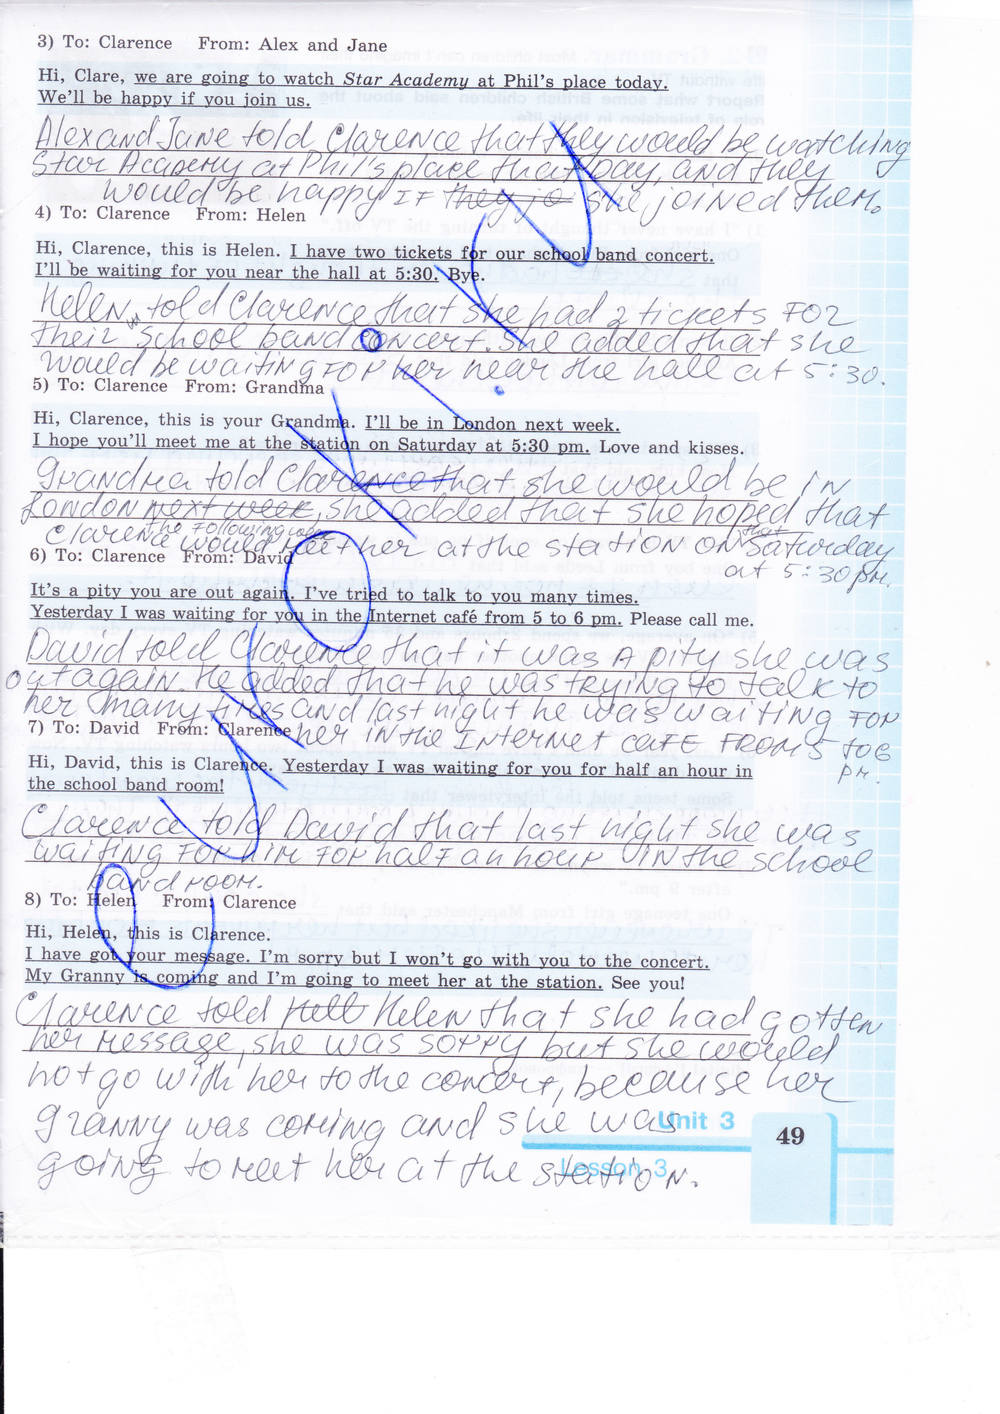 3) To: Clarence From: Alex and Jane
Hi, Clare, we are going to watch Star Academy at Phil's place today.
We'll be happy if you join us.
Alex and Jane told Clarence that they would be watching
Star Acapemy at Phil's place that day, and they
would be happy if they jo she joined them.
4) To: Clarence From: Helen
Hi, Clarence, this is Helen. I have two tickets for our school band concert.
I'll be waiting for you near the hall at 5:30. Bye.
Helen told Clarence that she had 2 tickets for
their school band concert. She added that she
would be waiting for her near the hall at 5:30.
5) To: Clarence From: Grandma
Hi, Clarence, this is your Grandma. I'll be in London next week.
I hope you'll meet me at the station on Saturday at 5:30 pm. Love and kisses.
Grandma told Clarence that she would be in
London next week, she added that she hoped that
the following week
Clarence would meet her at the station on that Saturday
at 5:30 pm.
6) To: Clarence From: David
It's a pity you are out again. I've tried to talk to you many times.
Yesterday I was waiting for you in the Internet café from 5 to 6 pm. Please call me.
David told Clarence that it was a pity she was
out again. He added that he was trying to talk to
her many times and last night he was waiting for
her in the Internet cafe from 5 to 6
pm.
7) To: David From: Clarence
Hi, David, this is Clarence. Yesterday I was waiting for you for half an hour in
the school band room!
Clarence told David that last night she was
waiting for him for half an hour in the school
band room.
8) To: Helen From: Clarence
Hi, Helen, this is Clarence.
I have got your message. I'm sorry but I won't go with you to the concert.
My Granny is coming and I'm going to meet her at the station. See you!
Clarence told Hell Helen that she had gotten
her message, she was sorry but she would
not go with her to the concert, because her
granny was coming and she was
going to meet her at the station.
Unit 3
49
Lesson 3